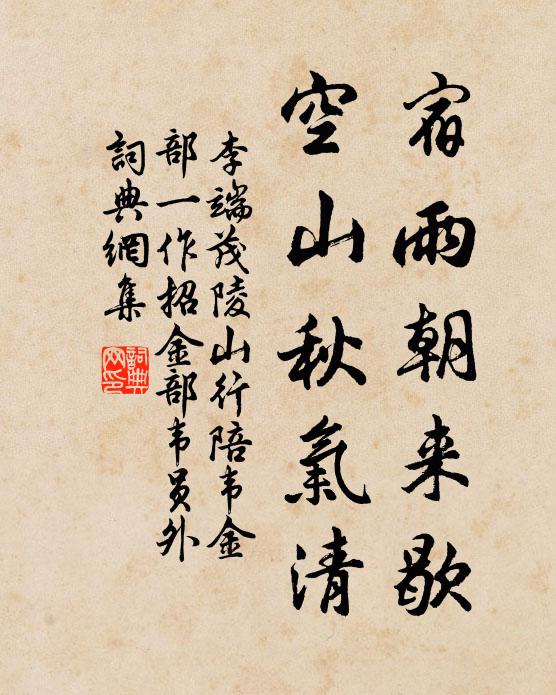 宿雨朝来歇
空山秋氣清
李端茂陵山行陪韦金
部一作招金部韦员外
詞典網集
詞典網印